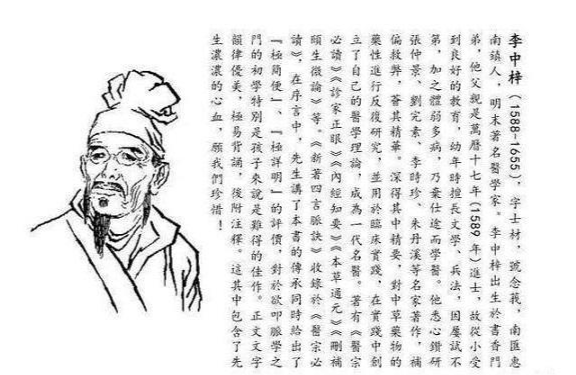 李中梓（1588-1655），字士材，號念莪，南匯惠
南鎮人，明末著名醫學家。李中梓出生於書香門
弟，他父親是萬曆十七年(1589 年)進士，故從小受
到良好的教育，幼年時擅長文學、兵法，因屢試不
第，加之體弱多病，乃棄仕途而學醫。他悉心鑽研
張仲景、劉完素、李時珍、朱丹溪等名家著作，補
偏救弊，薈其精華。深得其中精要，對中草藥物的
藥性進行反復研究，並用於臨床實踐，在實踐中創
立了自己的醫學理論，成為一代名醫。著有《醫宗
必讀》《診家正眼》《內經知要》《本草通元》《刪補
頤生微論》等。《新著四言脈訣》收錄於《醫宗必
讀》，在序言中，先生講了本書的傳承同時給出了
『極簡便』、『極詳明』的評價，對於欲叩脈學之
門的初學特別是孩子來說是難得的佳作。正文文字
韻律優美，極易背誦，後附注釋。這其中包含了先
生濃濃的心血，願我們珍惜！